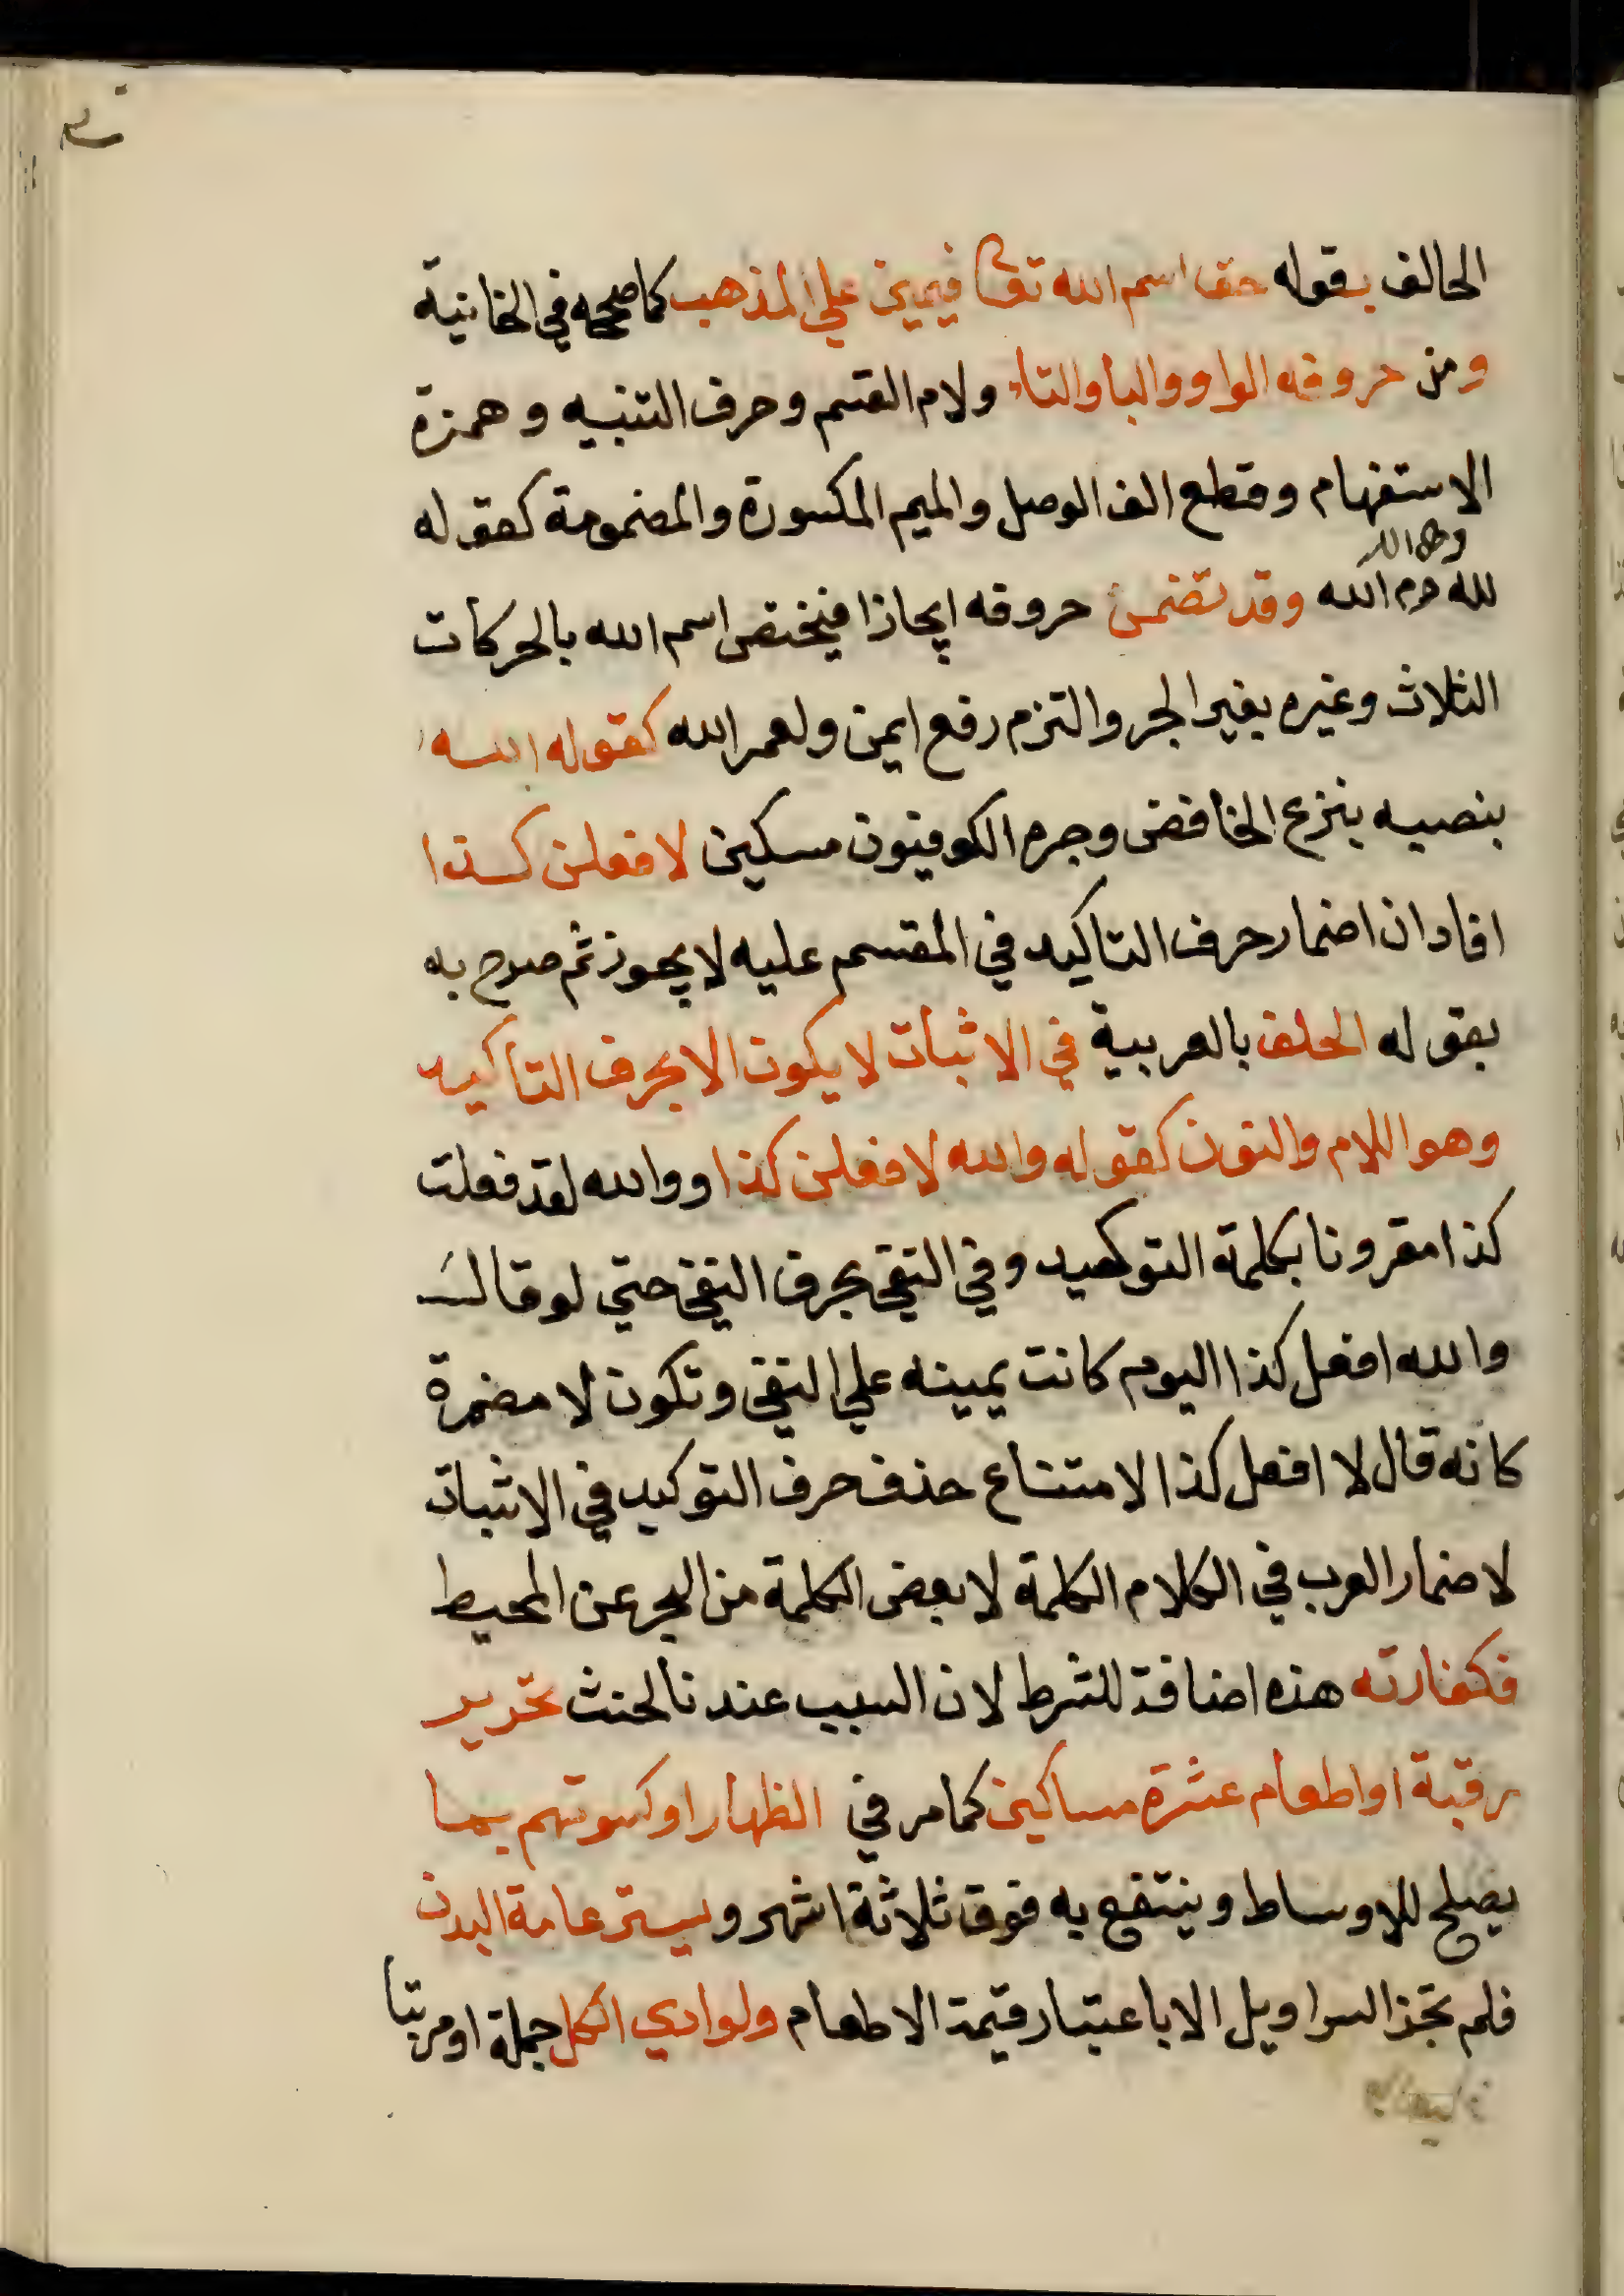 الحالف بقوله حقا اسم الله تعا فيمين علي المذهب كما صححه في الخانية
ومن حروفه الواو والبا والتاء ولام القسم وحرف التنبيه وهمزة
الاستفهام وقطع الف الوصل والميم المكسورة والمضمومة كقوله
وها الله
لله وم الله وقد تضمن حروفه ايجازا فيختص اسم الله بالحركات
الثلاث وغيره بغير الجر والتزم رفع ايمن ولعمر الله كقوله الله
بنصبه بنزع الخافض وجره الكوفيون مسكين لافعلن كذا
افاد ان اضمار حرف التاكيد في المقسم عليه لا يجوز ثم صرح به
بقوله الحلف بالعربية في الاثبات لا يكون الا بحرف التاكيد
وهو اللام والنون كقوله والله لافعلن كذا ووالله لقد فعلت
كذا مقرونا بكلمة التوكيد وفي النفي بحرف النفي حتي لو قال
والله افعل كذا اليوم كانت يمينه علي النفي وتكون لا مضمرة
كانه قال لا افعل كذا لامتناع حذف حرف التوكيد في الاثبات
لاضمار العرب في الكلام الكلمة لا بعض الكلمة من البحر عن المحيط
فكفارته هذه اضافة للشرط لان السبب عندنا الحنث تحرير
رقبة او اطعام عشرة مساكين كما مر في الظهار او كسوتهم بما
يصلح للاوساط وينتفع به فوق ثلاثة اشهر ويستر عامة البدن
فلم تجز السراويل الا باعتبار قيمة الاطعام ولو ادي الكل جملة او مرتبا